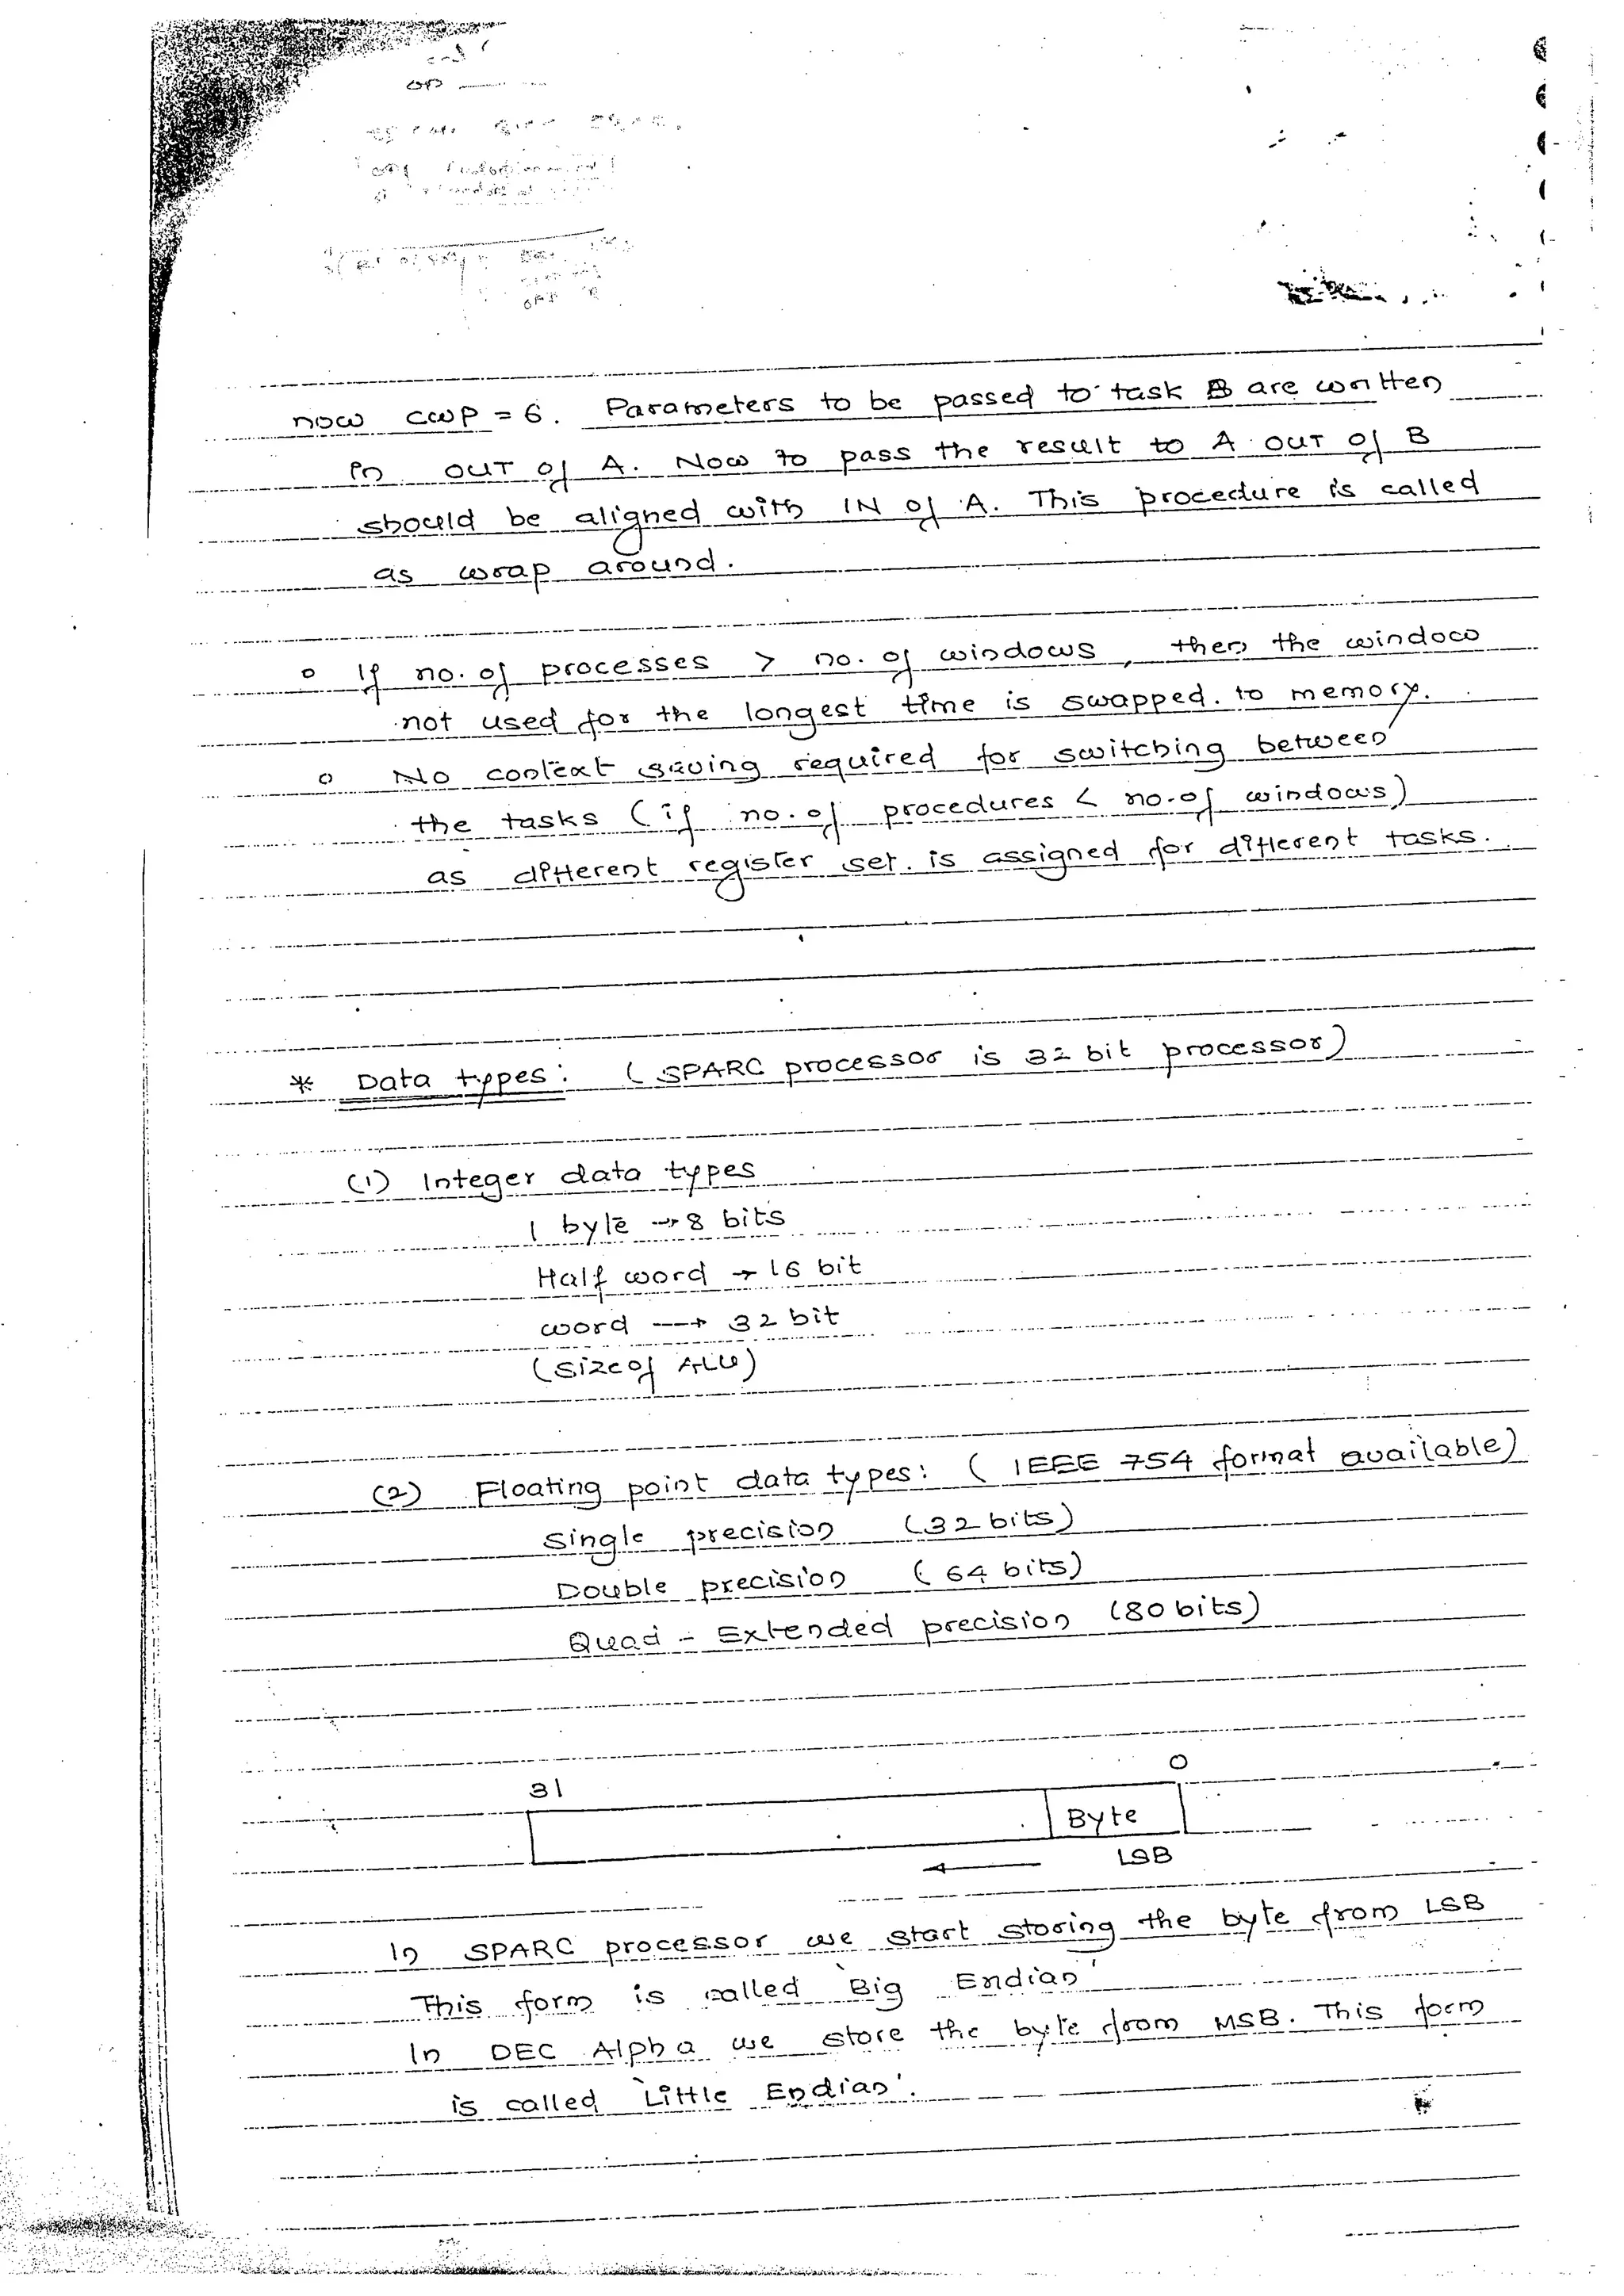 now CWP = 6. Parameters to be passed to task B are written
in OUT of A. Now to pass the result to A OUT of B
should be aligned with IN of A. This procedure is called
as wrap around.
o If no. of processes > no. of windows, then the window
not used for the longest time is swapped. to memory.
o No context saving required for switching between
the tasks (if no. of procedures < no. of windows)
as different register set. is assigned for different tasks.
* Data types: (SPARC processor is 32 bit processor)
(1) Integer data types
1 byte → 8 bits
Half word → 16 bit
word → 32 bit
(size of ALU)
(2) Floating point data types: (IEEE 754 format available)
Single precision (32 bits)
Double precision (64 bits)
Quad - Extended precision (80 bits)
31 0
Byte
← LSB
In SPARC processor we start storing the byte from LSB
This form is called 'Big Endian'
In DEC Alpha we store the byte from MSB. This form
is called 'Little Endian'.